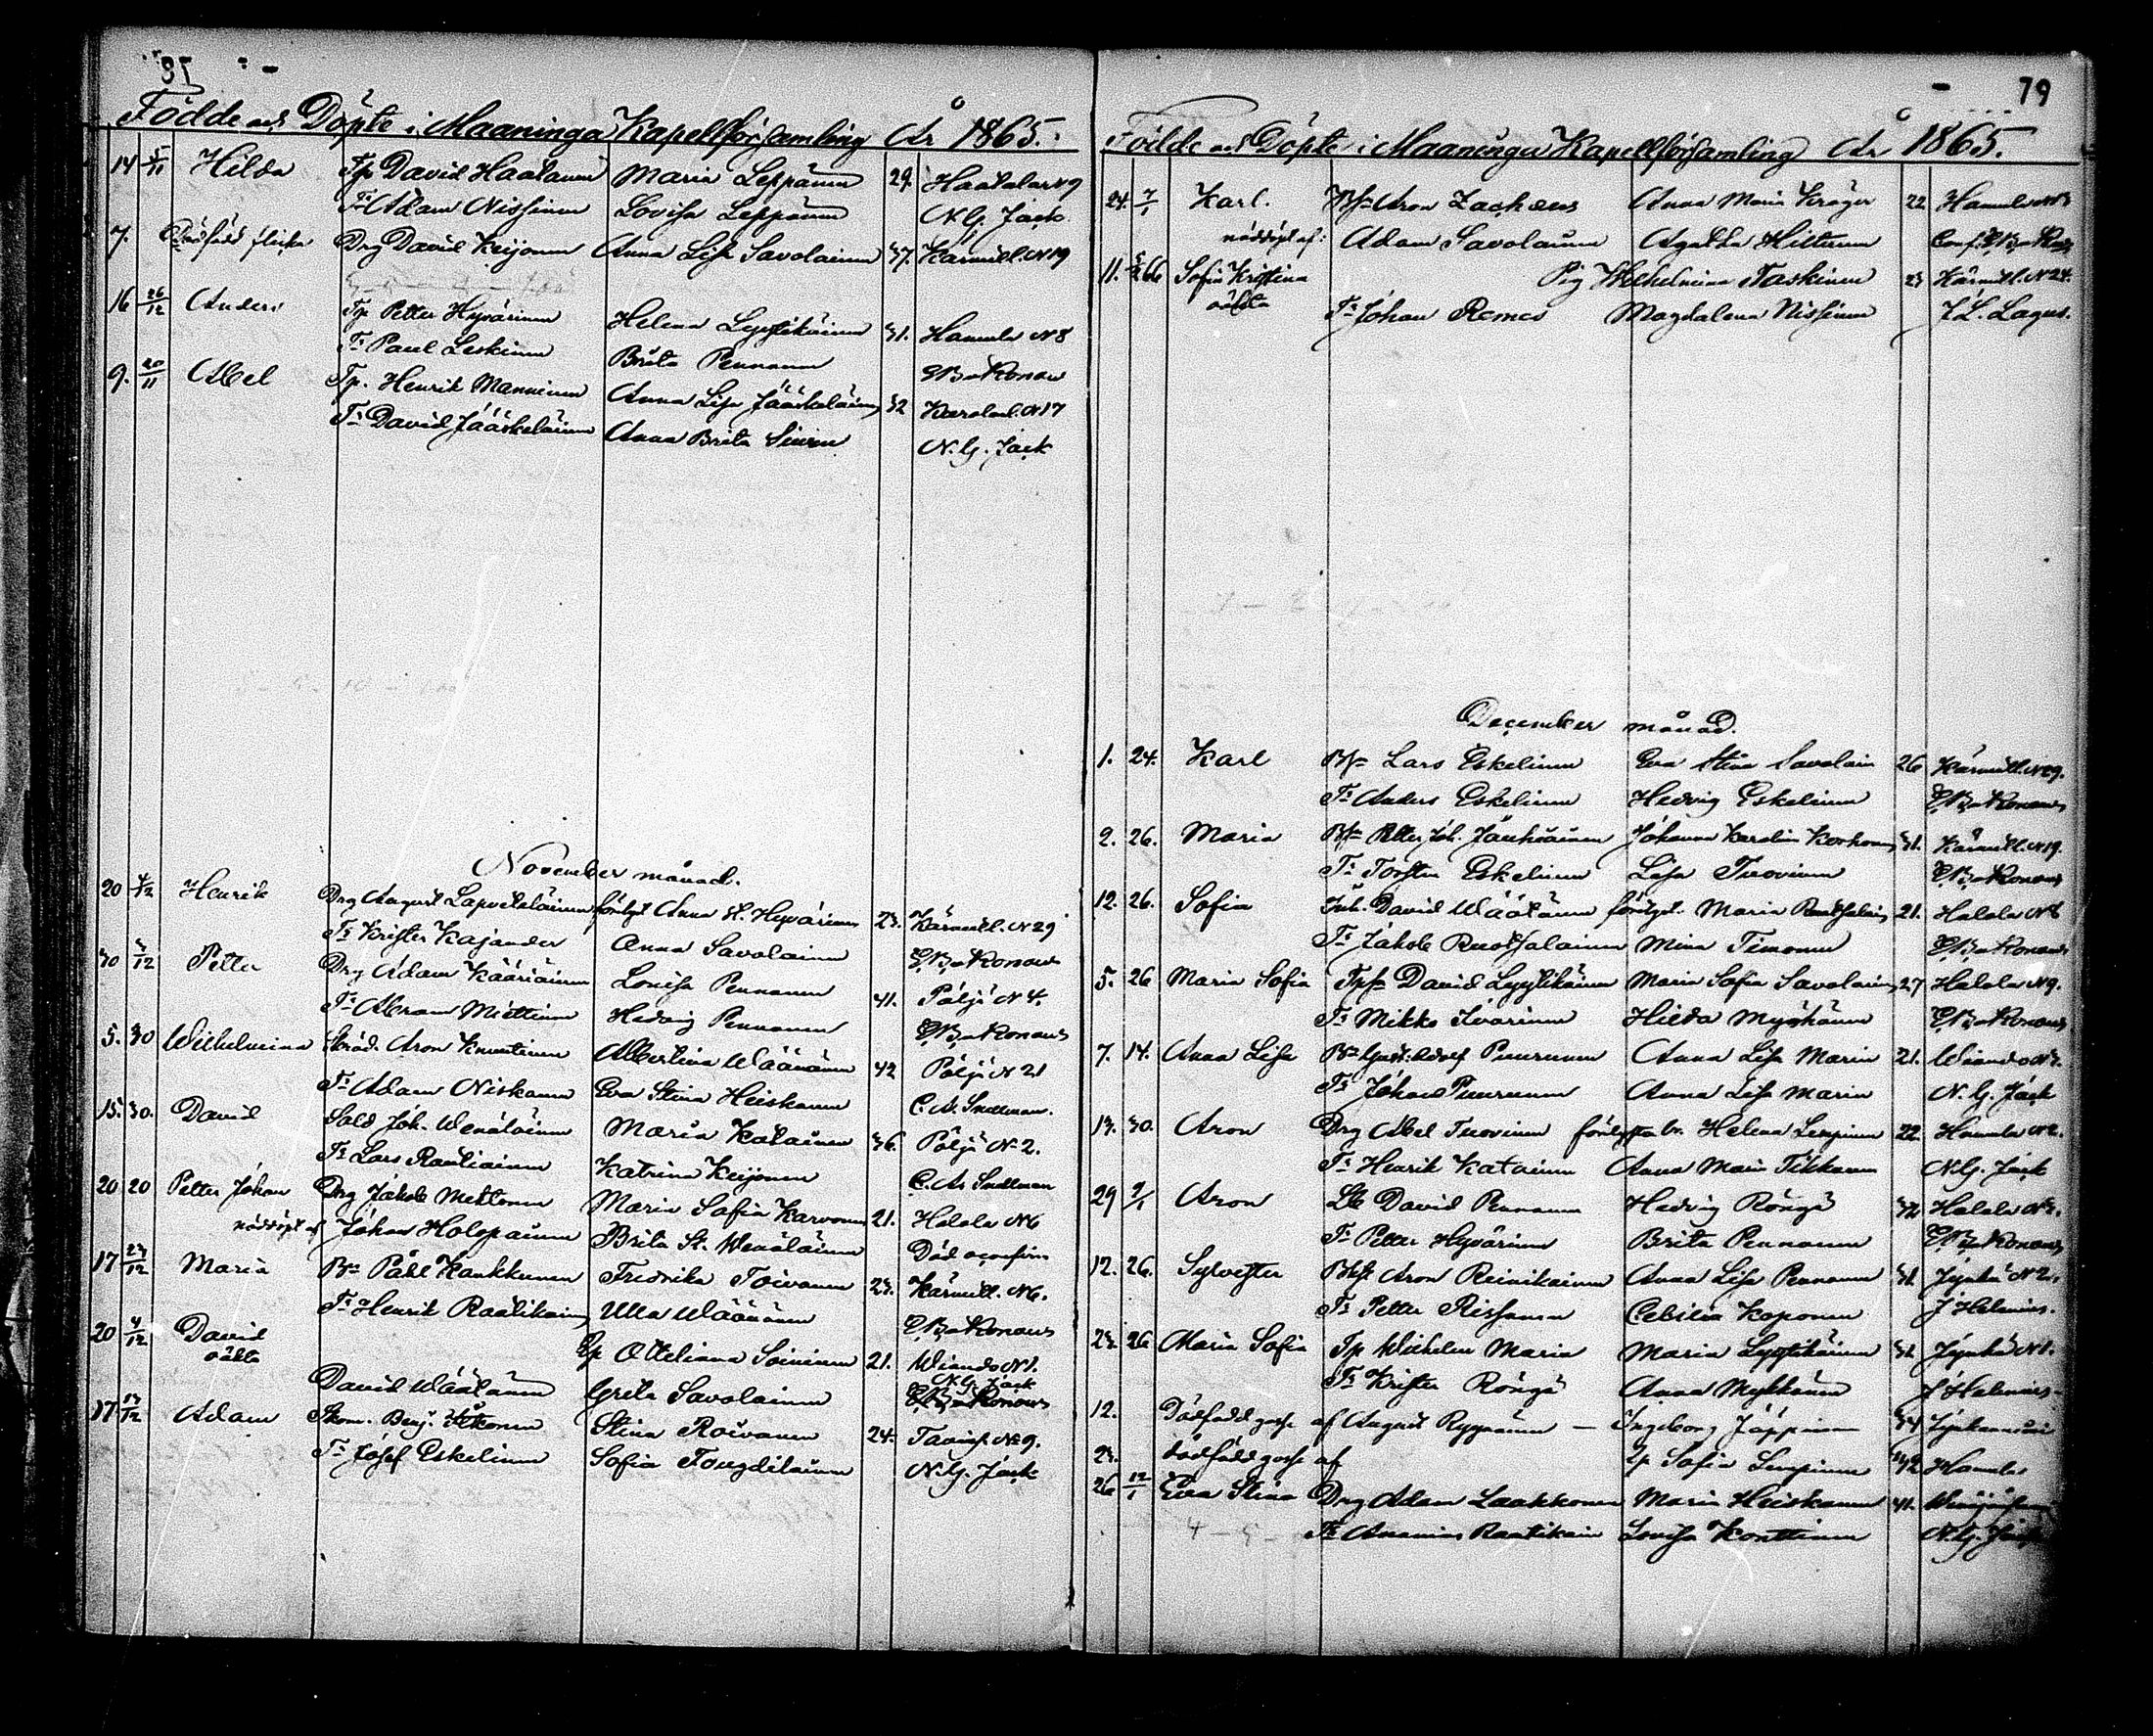 78
Födde och Döpte i Maaninga Kapellförsamling År 1865.
14 5/11 Hilda Tp David Haatanen Maria Leppänen 29. Haatala N 9
Ts Adam Nissinen Lovisa Leppänen N. G. Jack
7. Dödfödd flicka Drg David Keijonen Anna Lisa Savolainen 37. Kärnull. N 19
16 26/12 Anders Tp Petter Hyvärinen Helena Lyytikäinen 31. Hamula N 8
Ts Paul Leskinen Brita Pennanen E. B. Konow
9. 20/11 Abel Tp. Henrik Manninen Anna Lisa Jääskeläinen 32 N 17
Ts David Jääskeläinen Anna Brita N. G. Jack
November månad.
20 4/12 Henrik Drg August Lapveteläinen förlgd Anna St. Hyvärinen 23. Kärnull. N 29
Ts Krister Kajander Anna Savolainen E. B. Konow
30 3/12 Petter Drg Adam Kääriäinen Lovisa Pennanen 41. Pöljä N 4.
Ts Abram Miettinen Hedvig Pennanen E. B. Konow
5. 30 Wilhelmina Skräd. Aron Knuutinen Albertina Wäänänen 42 Pöljä N 21
Ts Adam Niskanen Eva Stina Heiskanen C. A. Snellman.
15. 30. David Sold Joh. Wenäläinen Maria Katainen 36. Pöljä N 2.
Ts Lars Rautiainen Katrina Keijonen C. A. Snellman
20 20 Petter Johan Drg Jakob Mehtonen Maria Sofia Karvonen 21. Halola N 6
nöddöpt af Johan Holopainen Brita St. Wenäläinen Död oconfirm
17 23/12 Maria Bs Påhl Kaukkunen Fredrika Toivanen 23. Kärnull. N 6.
Ts Henrik Raatikainen Ulla Wäänänen E. B. Konow
20 4/12 David Ip Otteliana Soininen 21. Wiando N 1.
oäkta N. G. Jack
David Wäätäinen Greta Savolainen E. B. Konow
17 17/12 Adam Skom. Benj. Stina Roivanen 24. Tavins. N 9.
Ts Josef Eskelinen Sofia N. G. Jack
79
Födde och Döpte i Maaninga Kapellförsamling År 1865.
24. 7/1 Karl. Bs Aron Zachæus Anna Maria Kröger 22 Hamula N 3
nöddöpt af: Adam Savolainen Agatha Hiltunen Conf. E. B. Konow
11. 66 Sofia Kristina Pig Wilhelmina Taskinen 23 Kärnull. N 24.
oäkta Ts Johan Remes Magdalena Nissinen J. L. Lagus.
December månad.
1. 24. Karl Bs Lars Eskelinen Eva Stina Savolain 26 Kärnull. N 29.
Ts Anders Eskelinen Hedvig Eskelinen E. B. Konow
2. 26. Maria Bs Petter Joh. Jauhiainen Johanna Karolin Korhonen 31. Kärnull. N 19.
Ts Torsten Eskelinen Lisa Tuovinen E. B. Konow
12. 26. Sofia Inh. David Wäätäinen förlgd. Maria Ruotsalain 21. Halola N 8
Ts Jakob Ruotsalainen Mina Timonen E. B. Konow
5. 26 Maria Sofia Tps David Lyytikäinen Maria Sofia Savolainen 27 Halola N 9.
Ts Mikko Hilda Mykkänen E. B. Konow
7. 14. Anna Lisa Bs Gust: Adolf Puurunen Anna Lisa Marin 21. Wiando N 7.
Ts Johan Puurunen Anna Lisa Marin N. G. Jack
13. 30. Aron Drg Abel Tuovinen Helena Lempinen 22. Hamula N 2.
Ts Henrik Katainen Anna Maria Tikkanen N. G. Jack
29 9/1 Aron Lb David Pennanen Hedvig Röngä 32 Halola N 3.
Ts Petter Hyvärinen Brita Pennanen E. B. Konow
12. 26. Sylvester Aron Reinikainen Anna Lisa Pennanen 31. Jynkä N 2.
Ts Petter Rissanen Cecilia Koponen J Helenius.
23. 26 Maria Sofia Tp Wilhelm Marin Maria Lyytikäinen 31 Jynkä N 1.
Ts Krister Röngä Anna Mykkänen J Helenius.
12. Dödfödd gosse af August Ryynänen — Ingeborg Jäppinen 34
23. dödfödd gosse af Ip Sofia Lempinen 42 Hamula
26 12/1 Eva Stina Drg Adam Laakkonen Maria Heiskanen 41.
Ts Ananias Raatikain Lovisa Konttinen N. G. Jack